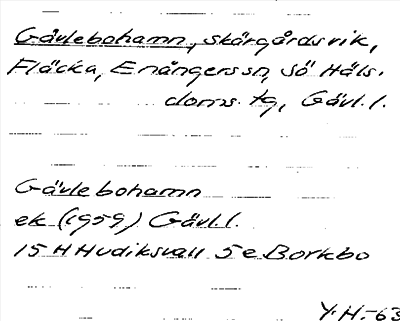 Gävlebohamn, skärgårdsvik,
Fläcka, Enångers sn, Sö Häls.
doms. tg, Gävl. l.
Gävlebohamn
ek (1959) Gävl. l.
15 H Hudiksvall 5 e Borkbo
Y.H.-63